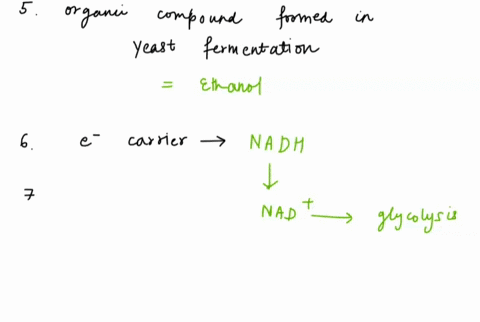 5. organic compound formed in
yeast fermentation
= Ethanol
6. e⁻ carrier → NADH
↓
7
NAD⁺ → glycolysis